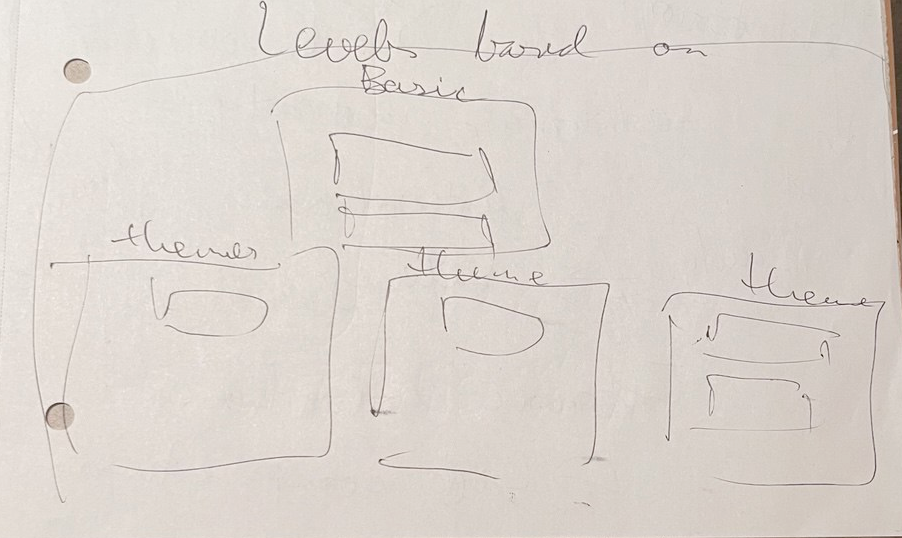 Levels based on
Basic
themes
theme
theme